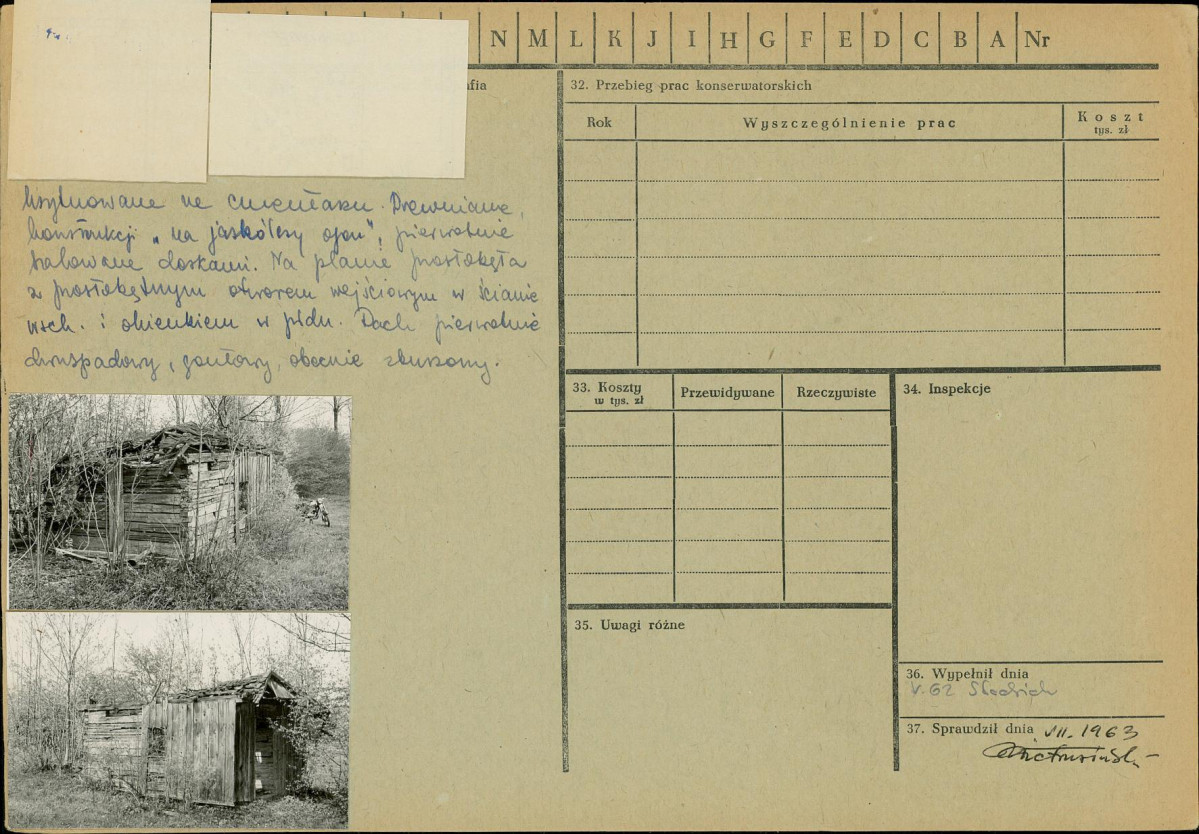 N M L K J I H G F E D C B A Nr
afia
32. Przebieg prac konserwatorskich
Rok
Wyszczególnienie prac
Koszt
tys. zł
Usytuowane na cmentarzu. Drewniane,
konstrukcji „na jaskółczy ogon", pierwotnie
szalowane deskami. Na planie prostokąta
z prostokątnym otworem wejściowym w ścianie
wsch. i okienkiem w płdn. Dach pierwotnie
dwuspadowy, gontowy, obecnie zburzony.
33. Koszty
w tys. zł
Przewidywane
Rzeczywiste
34. Inspekcje
35. Uwagi różne
36. Wypełnił dnia
V. 62
37. Sprawdził dnia VII. 1963